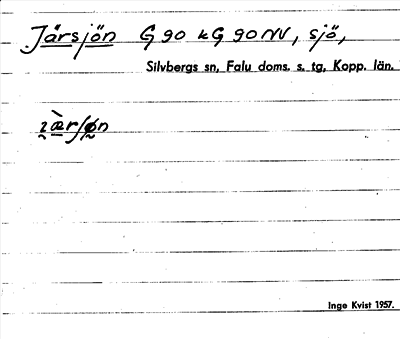 Järsjön G 90 k G 90 NV, sjö,
Silvbergs sn, Falu doms. s. tg, Kopp. län.
Inge Kvist 1957.